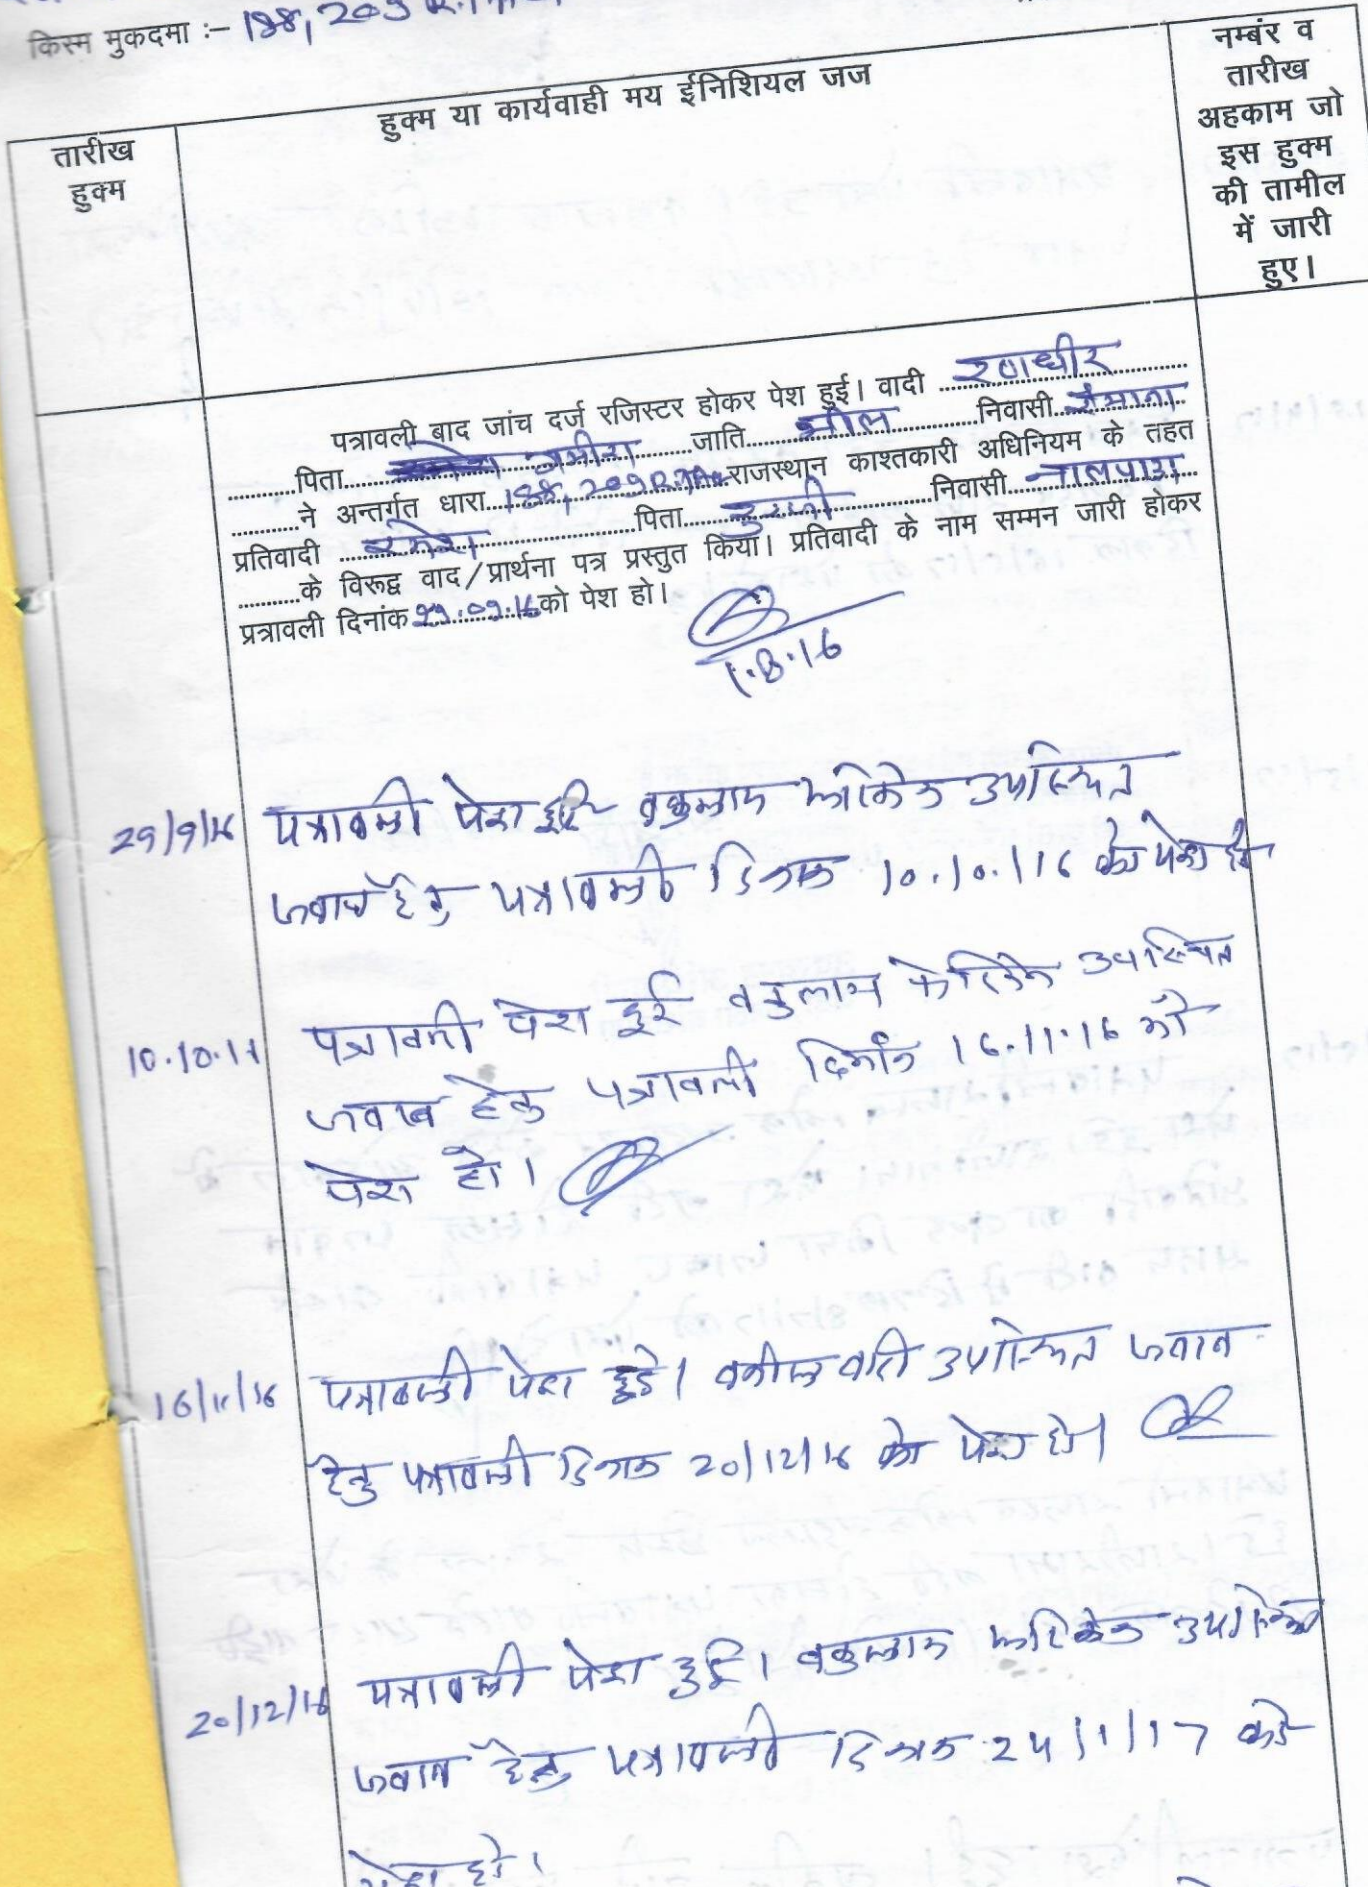 किस्म मुकदमा :– 188, 209
तारीख
हुक्म
हुक्म या कार्यवाही मय ईनिशियल जज
नम्बंर व
तारीख
अहकाम जो
इस हुक्म
की तामील
में जारी
हुए।
पत्रावली बाद जांच दर्ज रजिस्टर होकर पेश हुई। वादी रणधीर
पिता जाति भील निवासी
ने अन्तर्गत धारा 188, 209 R.T.A. राजस्थान काश्तकारी अधिनियम के तहत
प्रतिवादी रमेश पिता निवासी
के विरूद्व वाद/प्रार्थना पत्र प्रस्तुत किया। प्रतिवादी के नाम सम्मन जारी होकर
प्रत्रावली दिनांक को पेश हो।
1.8.16
29/9/16 पत्रावली पेश हुई वकुलाय फरिकेन उपस्थित
जवाब हेतु पत्रावली दिनांक 10.10.16 को पेश हो
10.10.11 पत्रावली पेश हुई वकुलाय फरिकेन उपस्थित
जवाब हेतु पत्रावली दिनांक 16.11.16 को
पेश हो।
16/11/16 पत्रावली पेश हुई। वकील वादी उपस्थित जवाब
हेतु पत्रावली दिनांक 20/12/16 को पेश हो।
20/12/16 पत्रावली पेश हुई। वकुलाय फरिकेन उपस्थित
जवाब हेतु पत्रावली दिनांक 24/1/17 को
पेश हो।